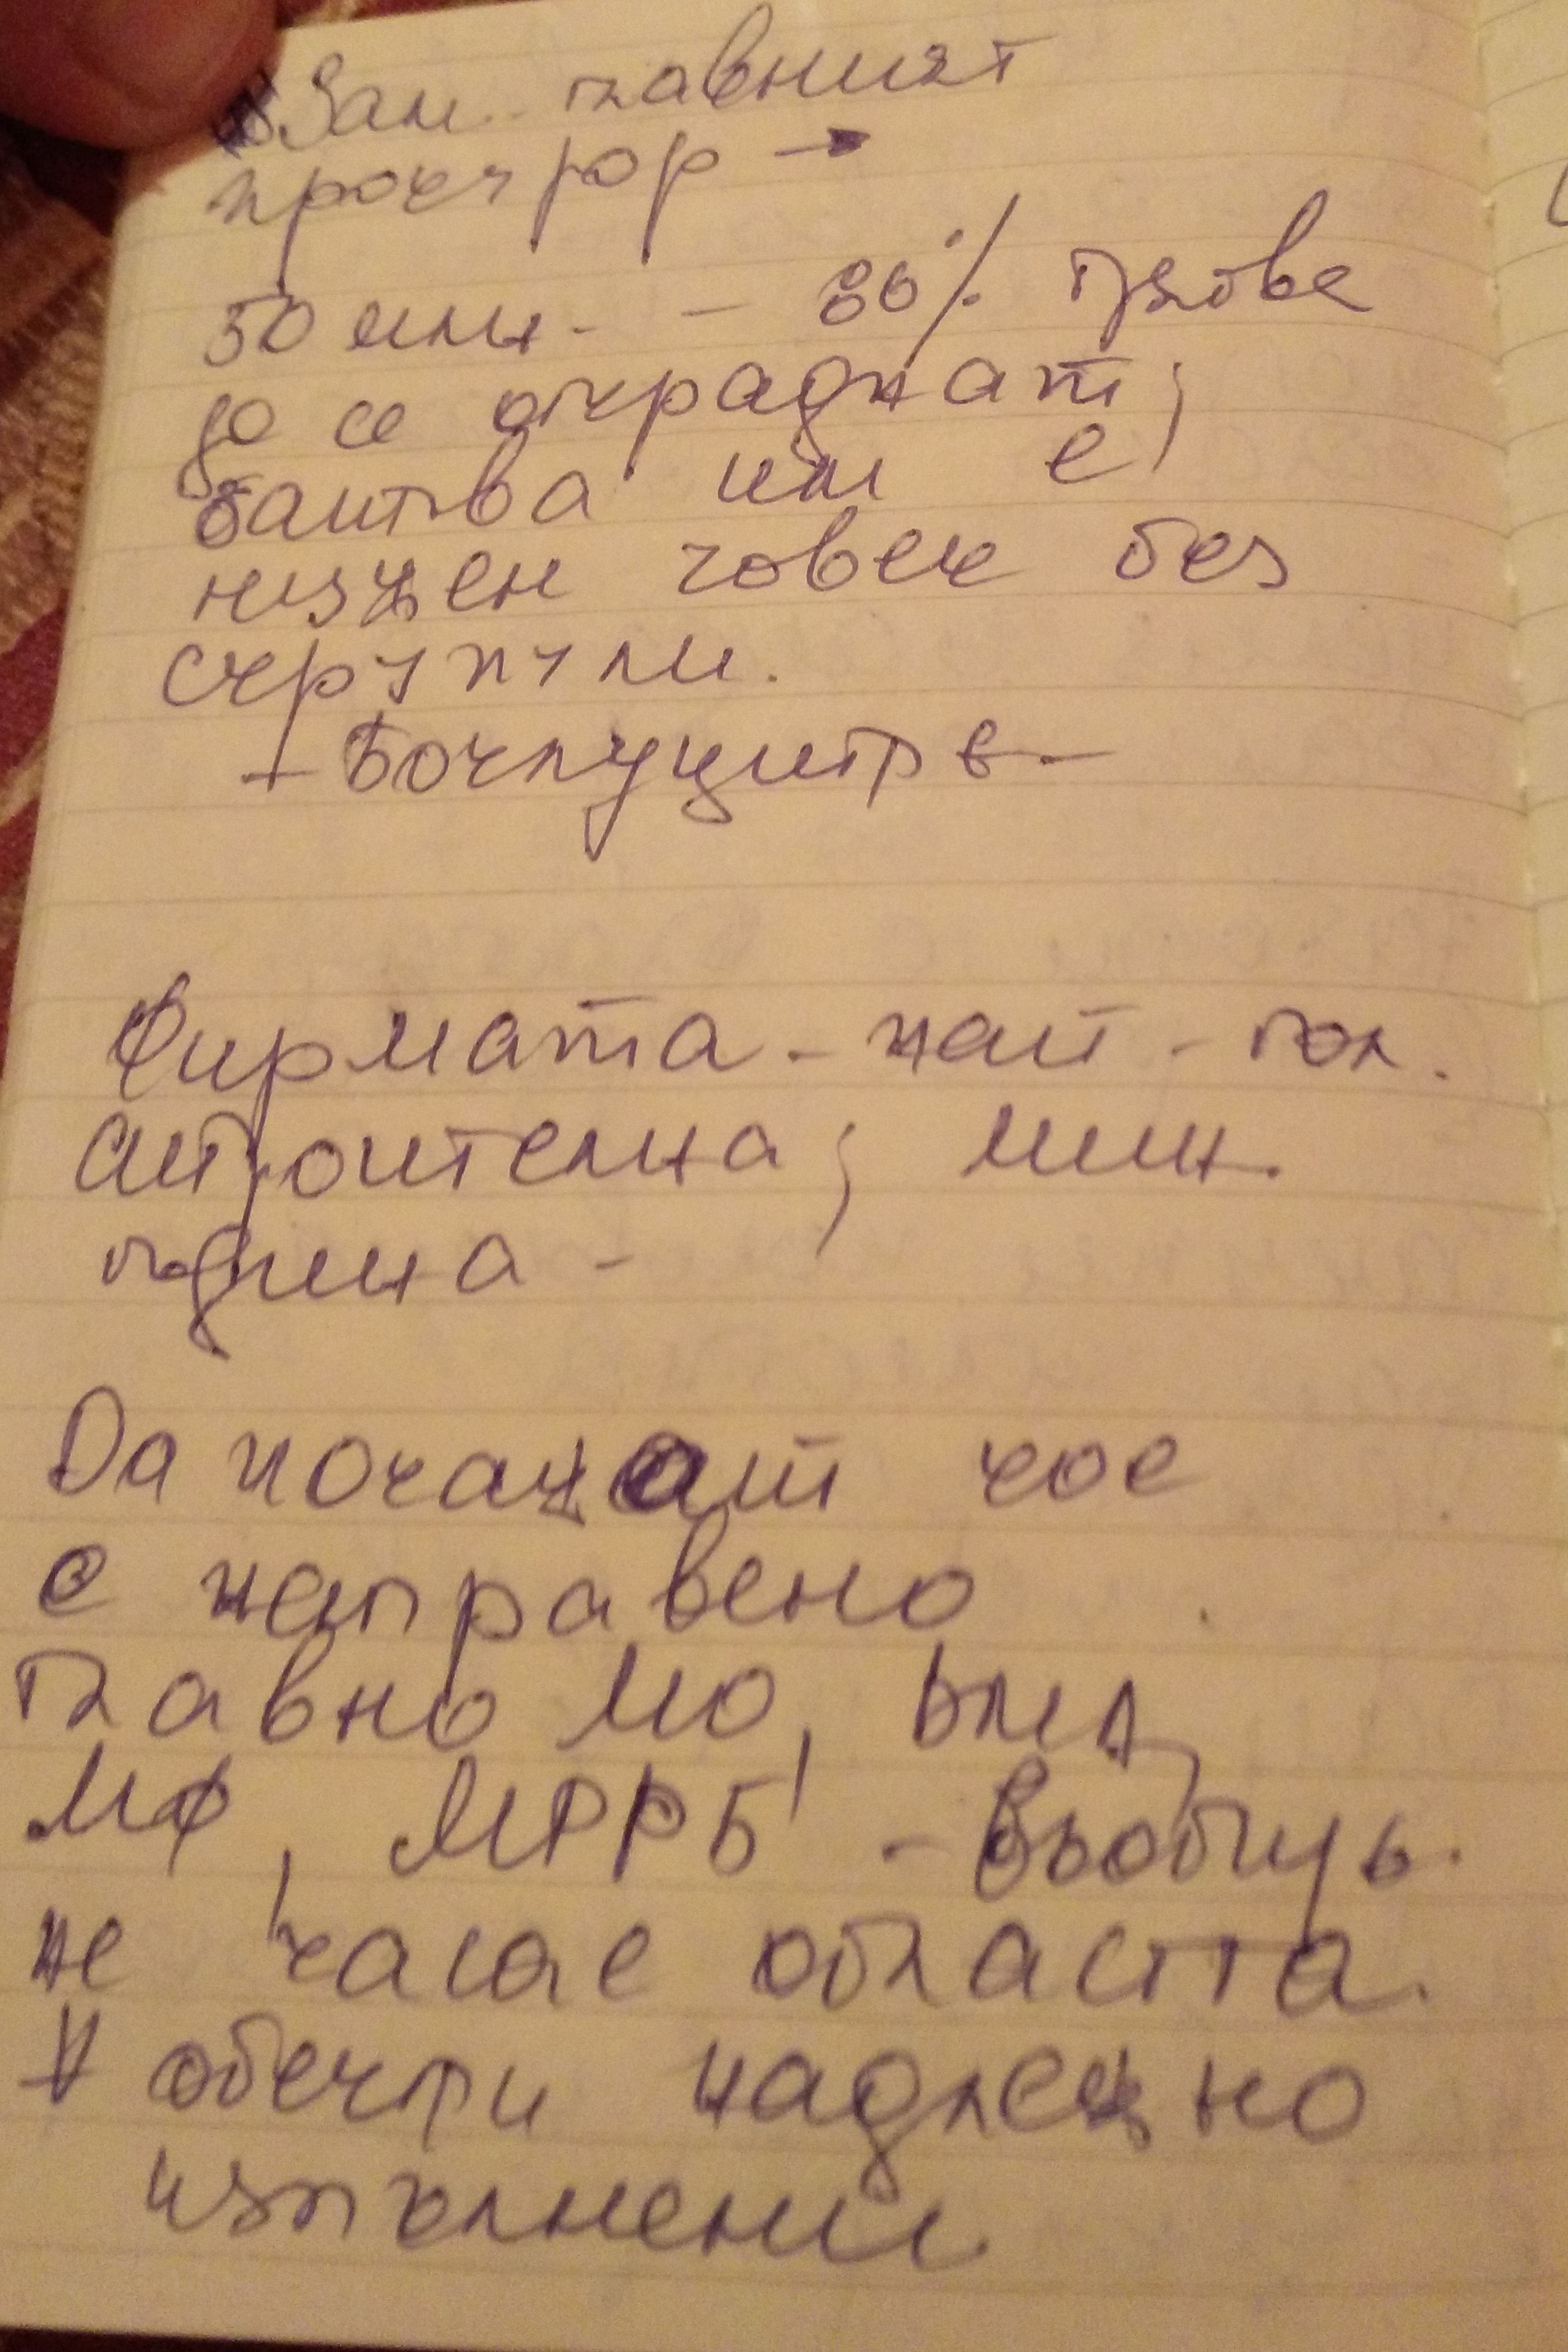 Зам. главният
прокурор →
50 млн. - 80% трябва
да се откраднат;
затова им е
нужен човек без
скрупули.
Фирмата - най - гол.
строителна; мин.
година -
Да покажат кое
е направено
главно МО, БМЦ,
МФ, МРРБ - въобще
не касае областта.
V обекти надлежно
изпълнени.